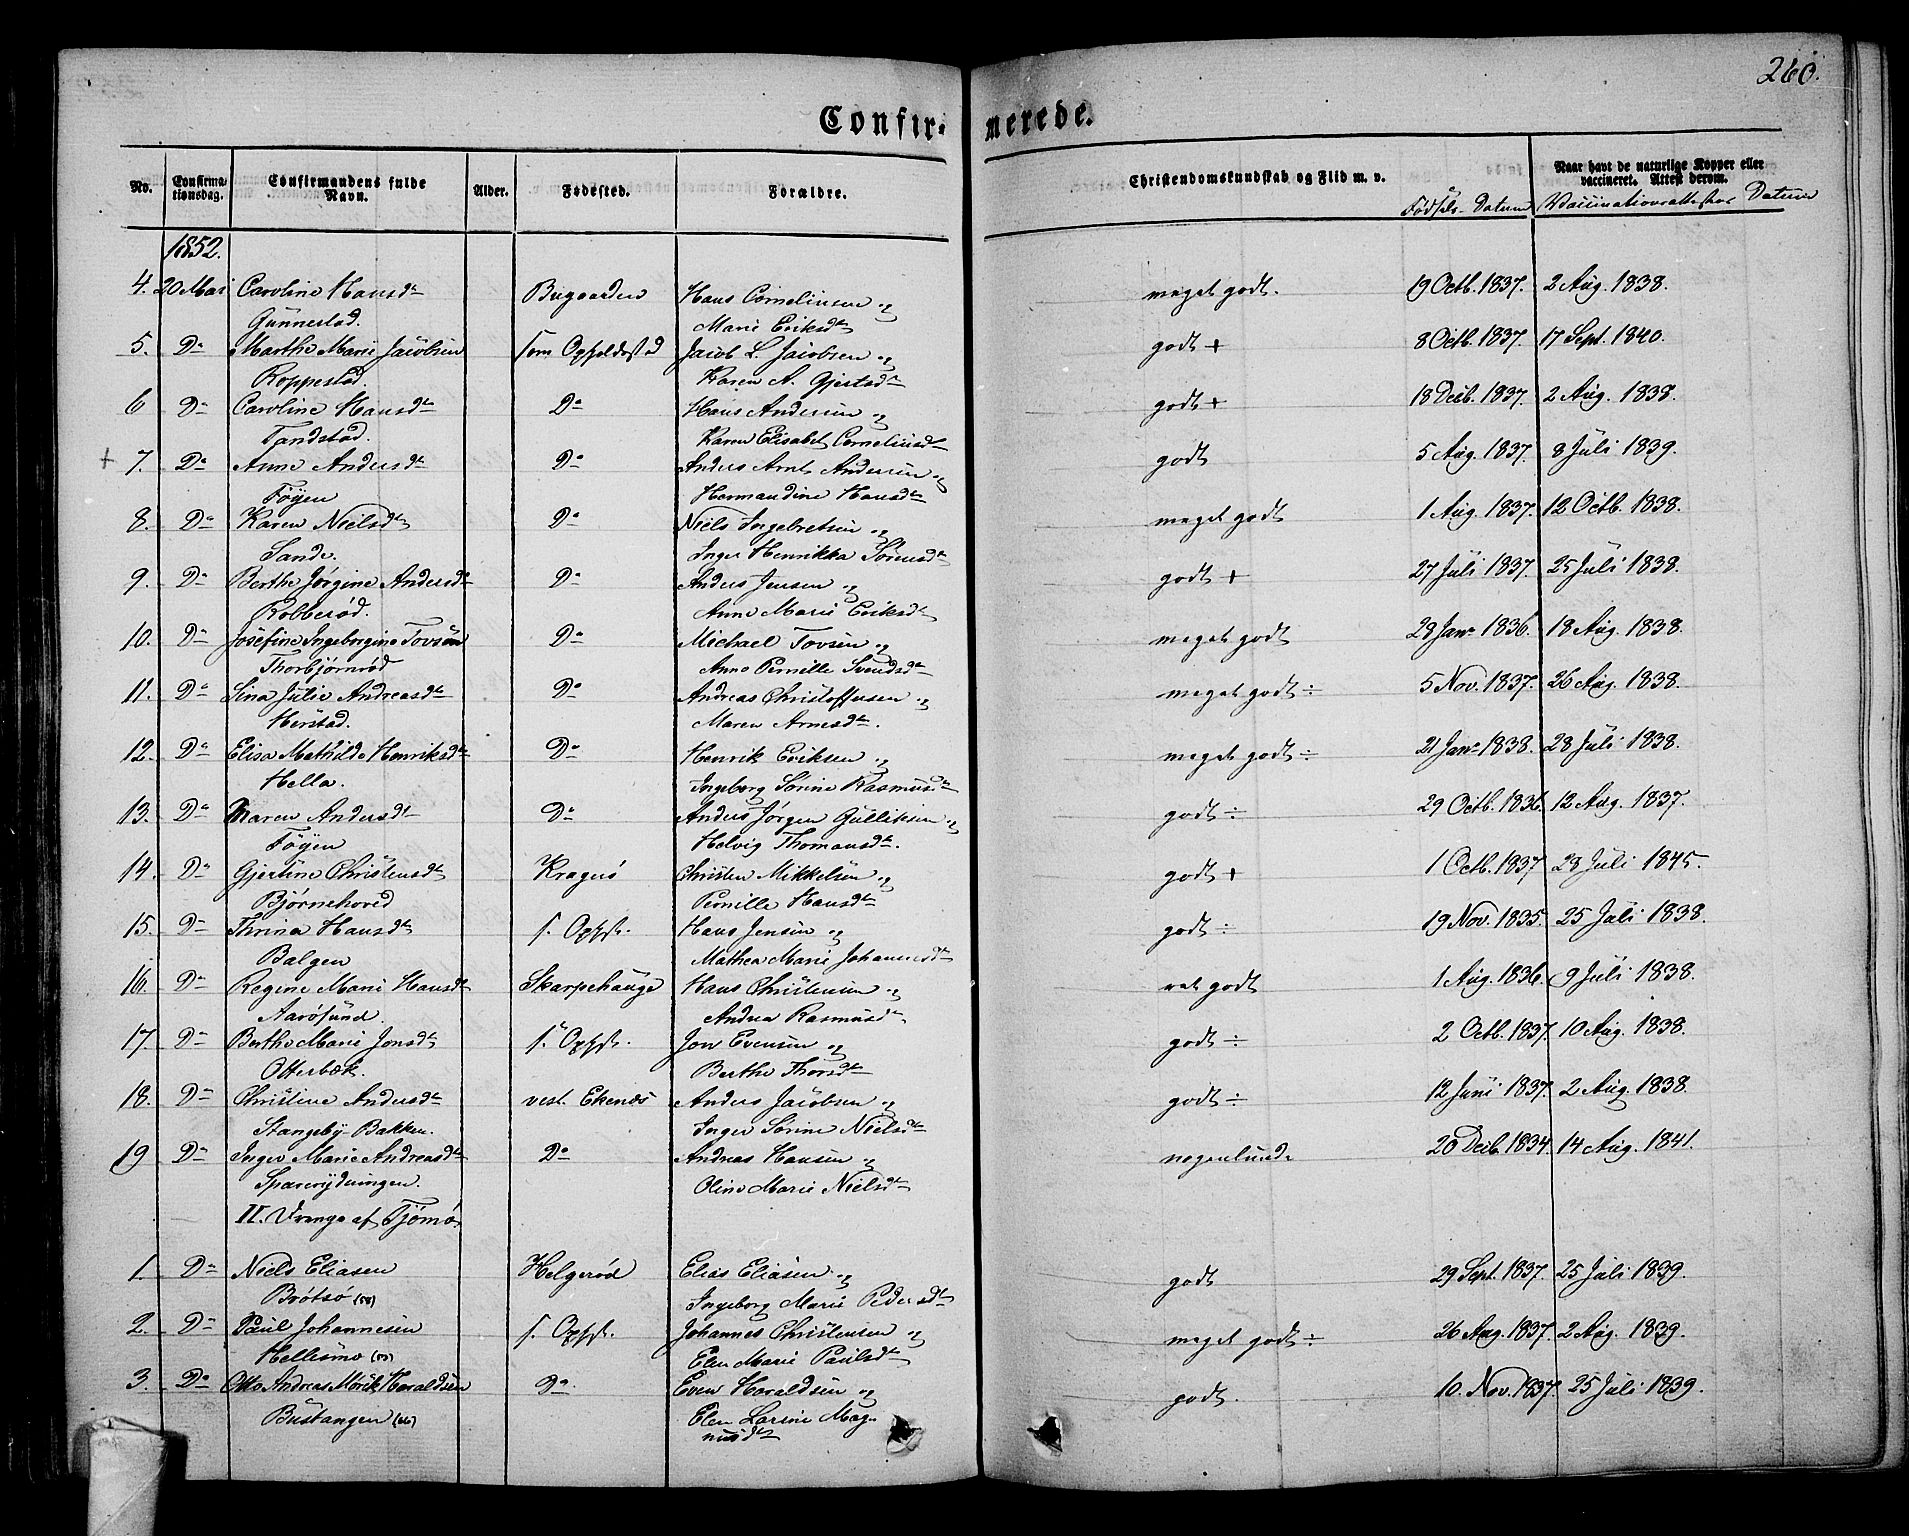 260.
Confir- merede.
No. Confirmationsdag. Confirmandens fulde Navn. Alder. Fødested. Forældre. Christendomskundskab og Flid m. v. Naar havt de naturlige Kopper eller vaccineret. Attest derom.
Fødsels-Datum Vaccinationsattestens Datum
1852.
4. 20 Mai Caroline Hansdtr Bugaarden Hans Corneliusen og meget godt. 19 Octb. 1837. 2 Aug. 1838.
Gunnestad. Marie Eriksdtr
5. Do Marthe Marie Jacobsen som Opholdssted Jacob L. Jacobsen og godt + 8 Octb. 1837. 17 Sept. 1840.
Roppestad. Karen A. Gjertsdtr
6 Do Caroline Hansdtr Do Hans Andersen og godt + 18 Decb. 1837. 2 Aug. 1838.
Tandstad. Karen Elisabet Corneliusdtr
+ 7. Do Anne Andersdtr Do Anders Arnt Andersen og godt 5 Aug. 1837. 8 Juli 1839.
Föyen Hermandine Hansdtr
8. Do Karen Nielsdtr Do Niels Ingebretsen og meget godt 1 Aug. 1837. 12 Octb. 1838.
Sande. Inger Henrikka Sörensdtr
9. Do Berthe Jörgine Andersdtr Do Anders Jensen og godt + 27 Juli 1837. 25 Juli 1838.
Robberød. Anne Marie Eriksdtr
10. Do Josefine Ingeborgine Tovsen Do Michael Tovsen og meget godt 28 Janr 1836. 18 Aug. 1838.
Thorbjørnrød Anne Pernille Svendsdtr
11. Do Sina Julie Andreasdtr Do Andreas Christoffersen og meget godt ÷ 5 Nov. 1837. 26 Aug. 1838.
Herstad. Maren Arnesdtr.
12. Do Elisa Mathilde Henriksdtr Do Henrik Eriksen og meget godt ÷ 21 Janr 1838. 28 Juli 1838.
Hella. Ingeborg Sörine Rasmusdtr
13. Do Maren Andersdtr Do Anders Jörgen Gulliksen og godt ÷ 29 Octb. 1836. 12 Aug. 1837.
Föyen Helvig Thomasdtr.
14. Do Gjertine Christensdtr Kragerø Christen Mikkelsen og godt + 1 Octb. 1837 23 Juli 1845.
Bjørnehoved Pernille Hansdtr
15. Do Thrina Hansdtr s. Ophst. Hans Jensen og godt ÷ 19 Nov. 1835. 25 Juli 1838.
Bolgen Mathea Marie Johannesdtr
16. Do Regine Marie Hansdtr Skarpehauge Hans Christensen og ret godt 1 Aug. 1836. 9 Juli 1838.
Aarøsund. Andrea Rasmusdtr
17. Do Berthe Marie Jonsdtr s. Ophst. Jon Evensen og godt ÷ 2 Octb. 1837. 10 Aug. 1838.
Otterbæk. Berthe Thorsdtr
18. Do Christine Andersdtr vest. Ekenæs Anders Jacobsen og godt ÷ 12 Juni 1837. 2 Aug. 1838.
Stangeby-Bakken. Inger Sörine Nielsdtr
19 Do Inger Marie Andreasdtr Do Andreas Hansen og nogenlunde 20 Decb. 1834. 14 Aug. 1841.
Sparrydningen. Oline Marie Nielsdtr
II. Drenge af Tjømø.
1. Do Niels Eliasen Helgerød Elias Eliasen og godt 29 Sept. 1837. 25 Juli 1839.
Brøtsø Ingeborg Marie Pedersdtr
2. Do Paul Johannesen s. Ophst. Johannes Christensen og meget godt ÷ 26 Aug. 1837. 2 Aug. 1839.
Hellesmo Elen Marie Paulsdtr
3. Do Otto Andreas Mörik Haraldsen Do. Even Haraldsen og godt. 10. Nov. 1837. 25 Juli 1839.
Bustangen (66) Elen Larine Mag-
nusdtr